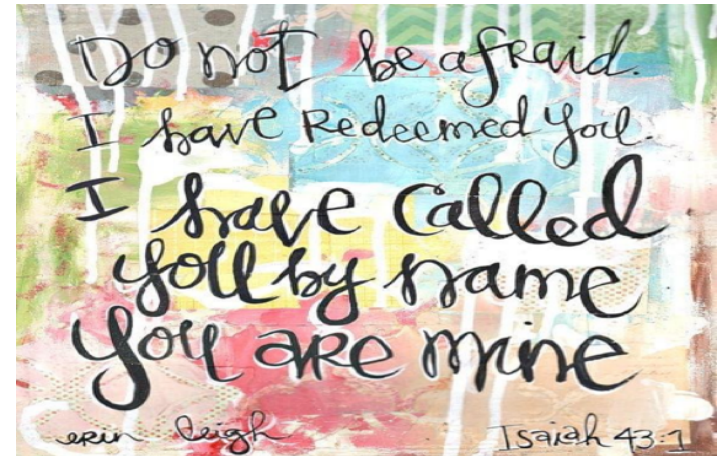 Do not be afraid.
I have Redeemed you.
I have called
you by name
you are mine
erin leigh Isaiah 43:1